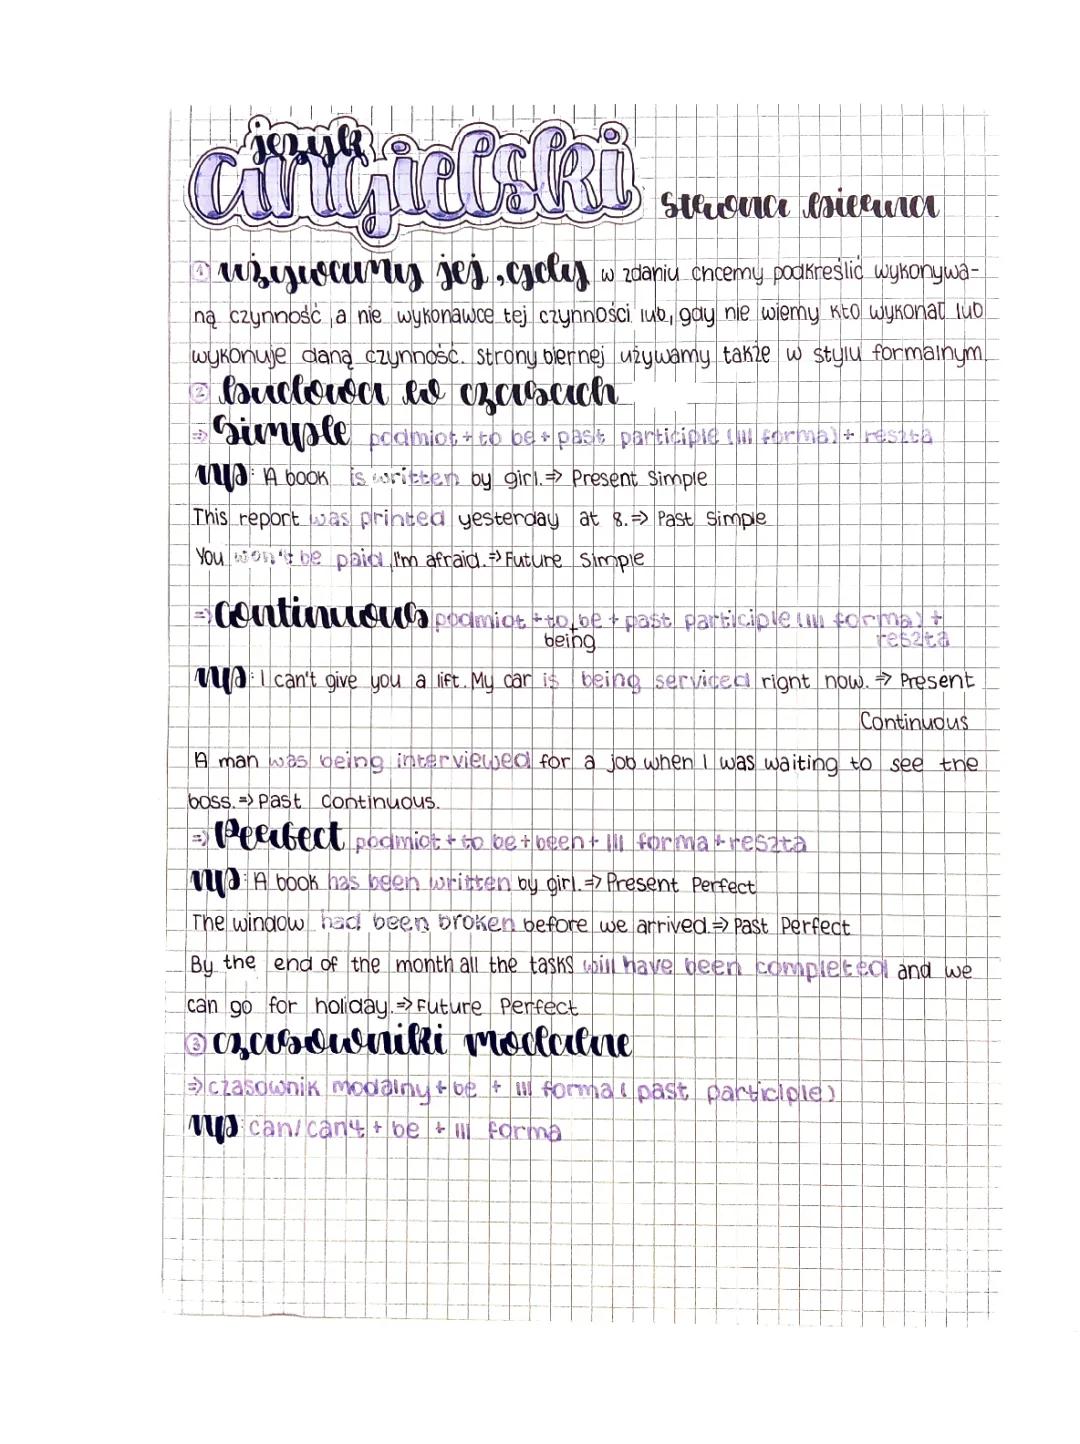 język
angielski strona bierna
1 używamy jej, gdy w zdaniu chcemy podkreślić wykonywa-
ną czynność, a nie wykonawcę tej czynności lub, gdy nie wiemy kto wykonał lub
wykonuje daną czynność. Strony biernej używamy także w stylu formalnym.
2 budowa w czasach
⇒ Simple podmiot + to be + past participle (III forma) + reszta
np: A book is written by girl. ⇒ Present Simple
This report was printed yesterday at 8. ⇒ Past Simple
You won't be paid, I'm afraid. ⇒ Future Simple
⇒ continuous podmiot + to be + past participle (III forma) +
+ being reszta
np: I can't give you a lift. My car is being serviced right now. ⇒ Present
Continuous
A man was being interviewed for a job when I was waiting to see the
boss. ⇒ Past Continuous.
⇒ Perfect podmiot + to be + been + III forma + reszta
np: A book has been written by girl. ⇒ Present Perfect
The window had been broken before we arrived. ⇒ Past Perfect
By the end of the month all the tasks will have been completed and we
can go for holiday. ⇒ Future Perfect
3 czasowniki modalne
⇒ czasownik modalny + be + III forma (past participle)
np: can/can't + be + III forma